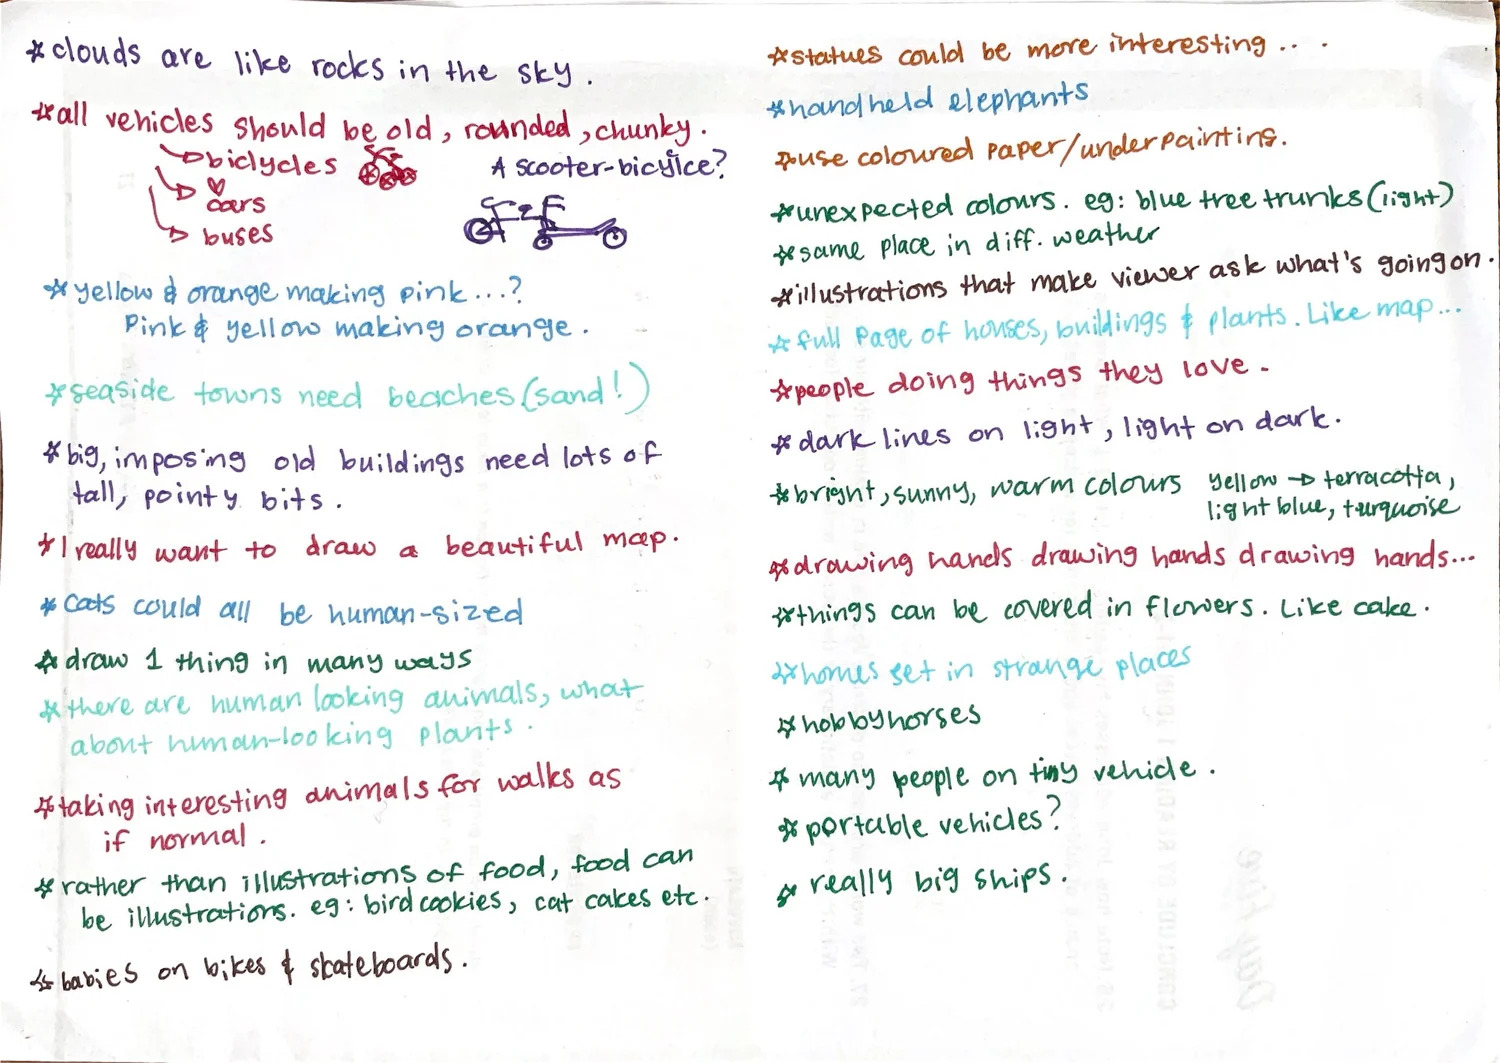 *clouds are like rocks in the sky.
*all vehicles should be old, rounded, chunky.
biclycles
cars
buses
A scooter-bicylce?
*yellow & orange making pink...?
Pink & yellow making orange.
*seaside towns need beaches (sand!)
*big, imposing old buildings need lots of
tall, pointy bits.
*I really want to draw a beautiful map.
*cats could all be human-sized
*draw 1 thing in many ways
*there are human looking animals, what
about human-looking plants.
*taking interesting animals for walks as
if normal.
*rather than illustrations of food, food can
be illustrations. eg: bird cookies, cat cakes etc.
*babies on bikes & skateboards.
*statues could be more interesting...
*handheld elephants
*use coloured paper/underpainting.
*unexpected colours. eg: blue tree trunks (light)
*same place in diff. weather
*illustrations that make viewer ask what's going on.
*full page of houses, buildings & plants. Like map...
*people doing things they love.
*dark lines on light, light on dark.
*bright, sunny, warm colours yellow → terracotta,
light blue, turquoise
*drawing hands drawing hands drawing hands...
*things can be covered in flowers. Like cake.
*homes set in strange places
*hobbyhorses
*many people on tiny vehicle.
*portable vehicles?
*really big ships.